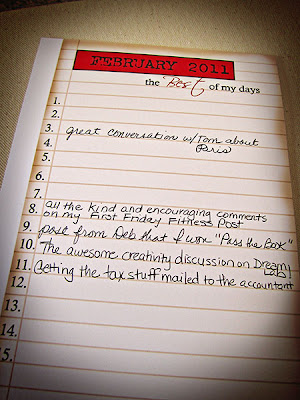 FEBRUARY 2011
the Best of my days
1.
2.
3. great conversation w/Tom about
Paris
4.
5.
6.
7.
8. all the kind and encouraging comments
on my First Friday Fitness Post
9. post from Deb that I won "Pass the Book"
10. The awesome creativity discussion on Dreamy
Lab
11. Getting the tax stuff mailed to the accountant
12.
13.
14.
15.